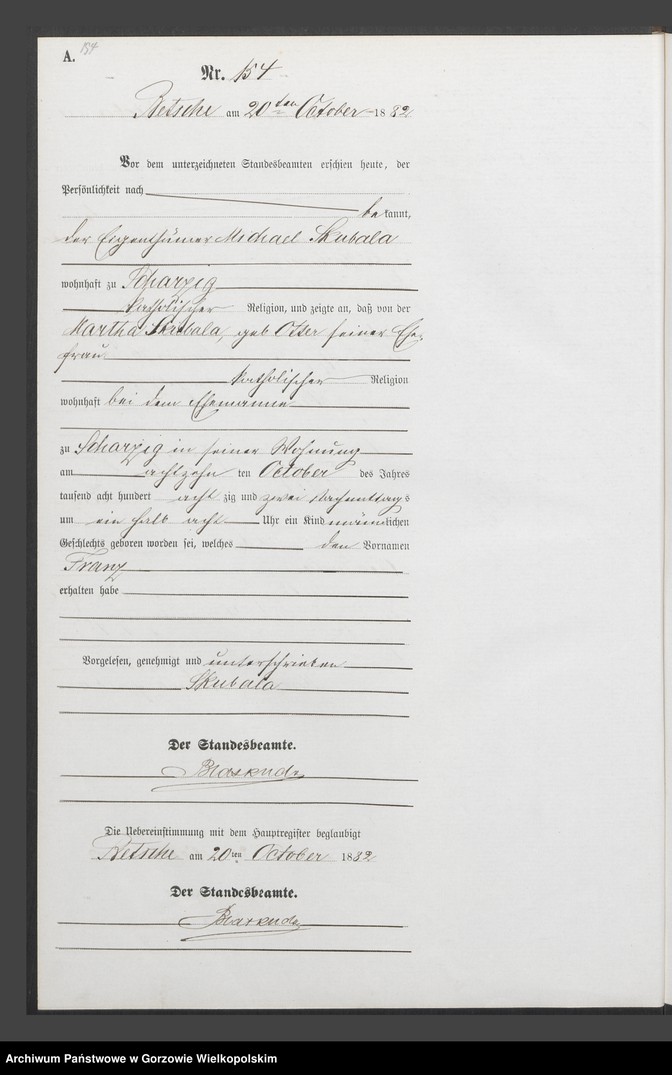 A. 154
Nr. 154
Betsche am 20ten October 1882
Vor dem unterzeichneten Standesbeamten erschien heute, der
Persönlichkeit nach
bekannt,
der Eigenthümer Michael Skubala
wohnhaft zu Scharzig
katholischer Religion, und zeigte an, daß von der
Martha Skubala, geb Otter seiner Ehe-
frau
katholischer Religion
wohnhaft bei dem Ehemanne
zu Scharzig in seiner Wohnung
am achtzehn ten October des Jahres
tausend acht hundert acht zig und zwei Nachmittags
um ein halb acht Uhr ein Kind männlichen
Geschlechts geboren worden sei, welches den Vornamen
Franz
erhalten habe
Vorgelesen, genehmigt und unterschrieben
Skubala
Der Standesbeamte.
Die Uebereinstimmung mit dem Hauptregister beglaubigt
Betsche am 20ten October 1882
Der Standesbeamte.
Archiwum Państwowe w Gorzowie Wielkopolskim